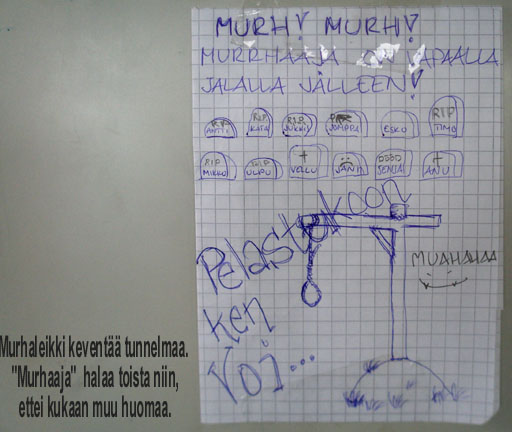 MURH! MURH!
MURRHAAJA ON VAPAALLA
JALALLA JÄLLEEN!
RIP ANTTI
RIP KATA
RIP JUKKIS
JOMPPA
ESKO
RIP TIMO
RIP MIKKO
RIP ULPU
VELLU
JANI
SENJA
ANU
Pelastukoon
ken
voi...
MUAHAHAA
Murhaleikki keventää tunnelmaa.
"Murhaaja" halaa toista niin,
ettei kukaan muu huomaa.